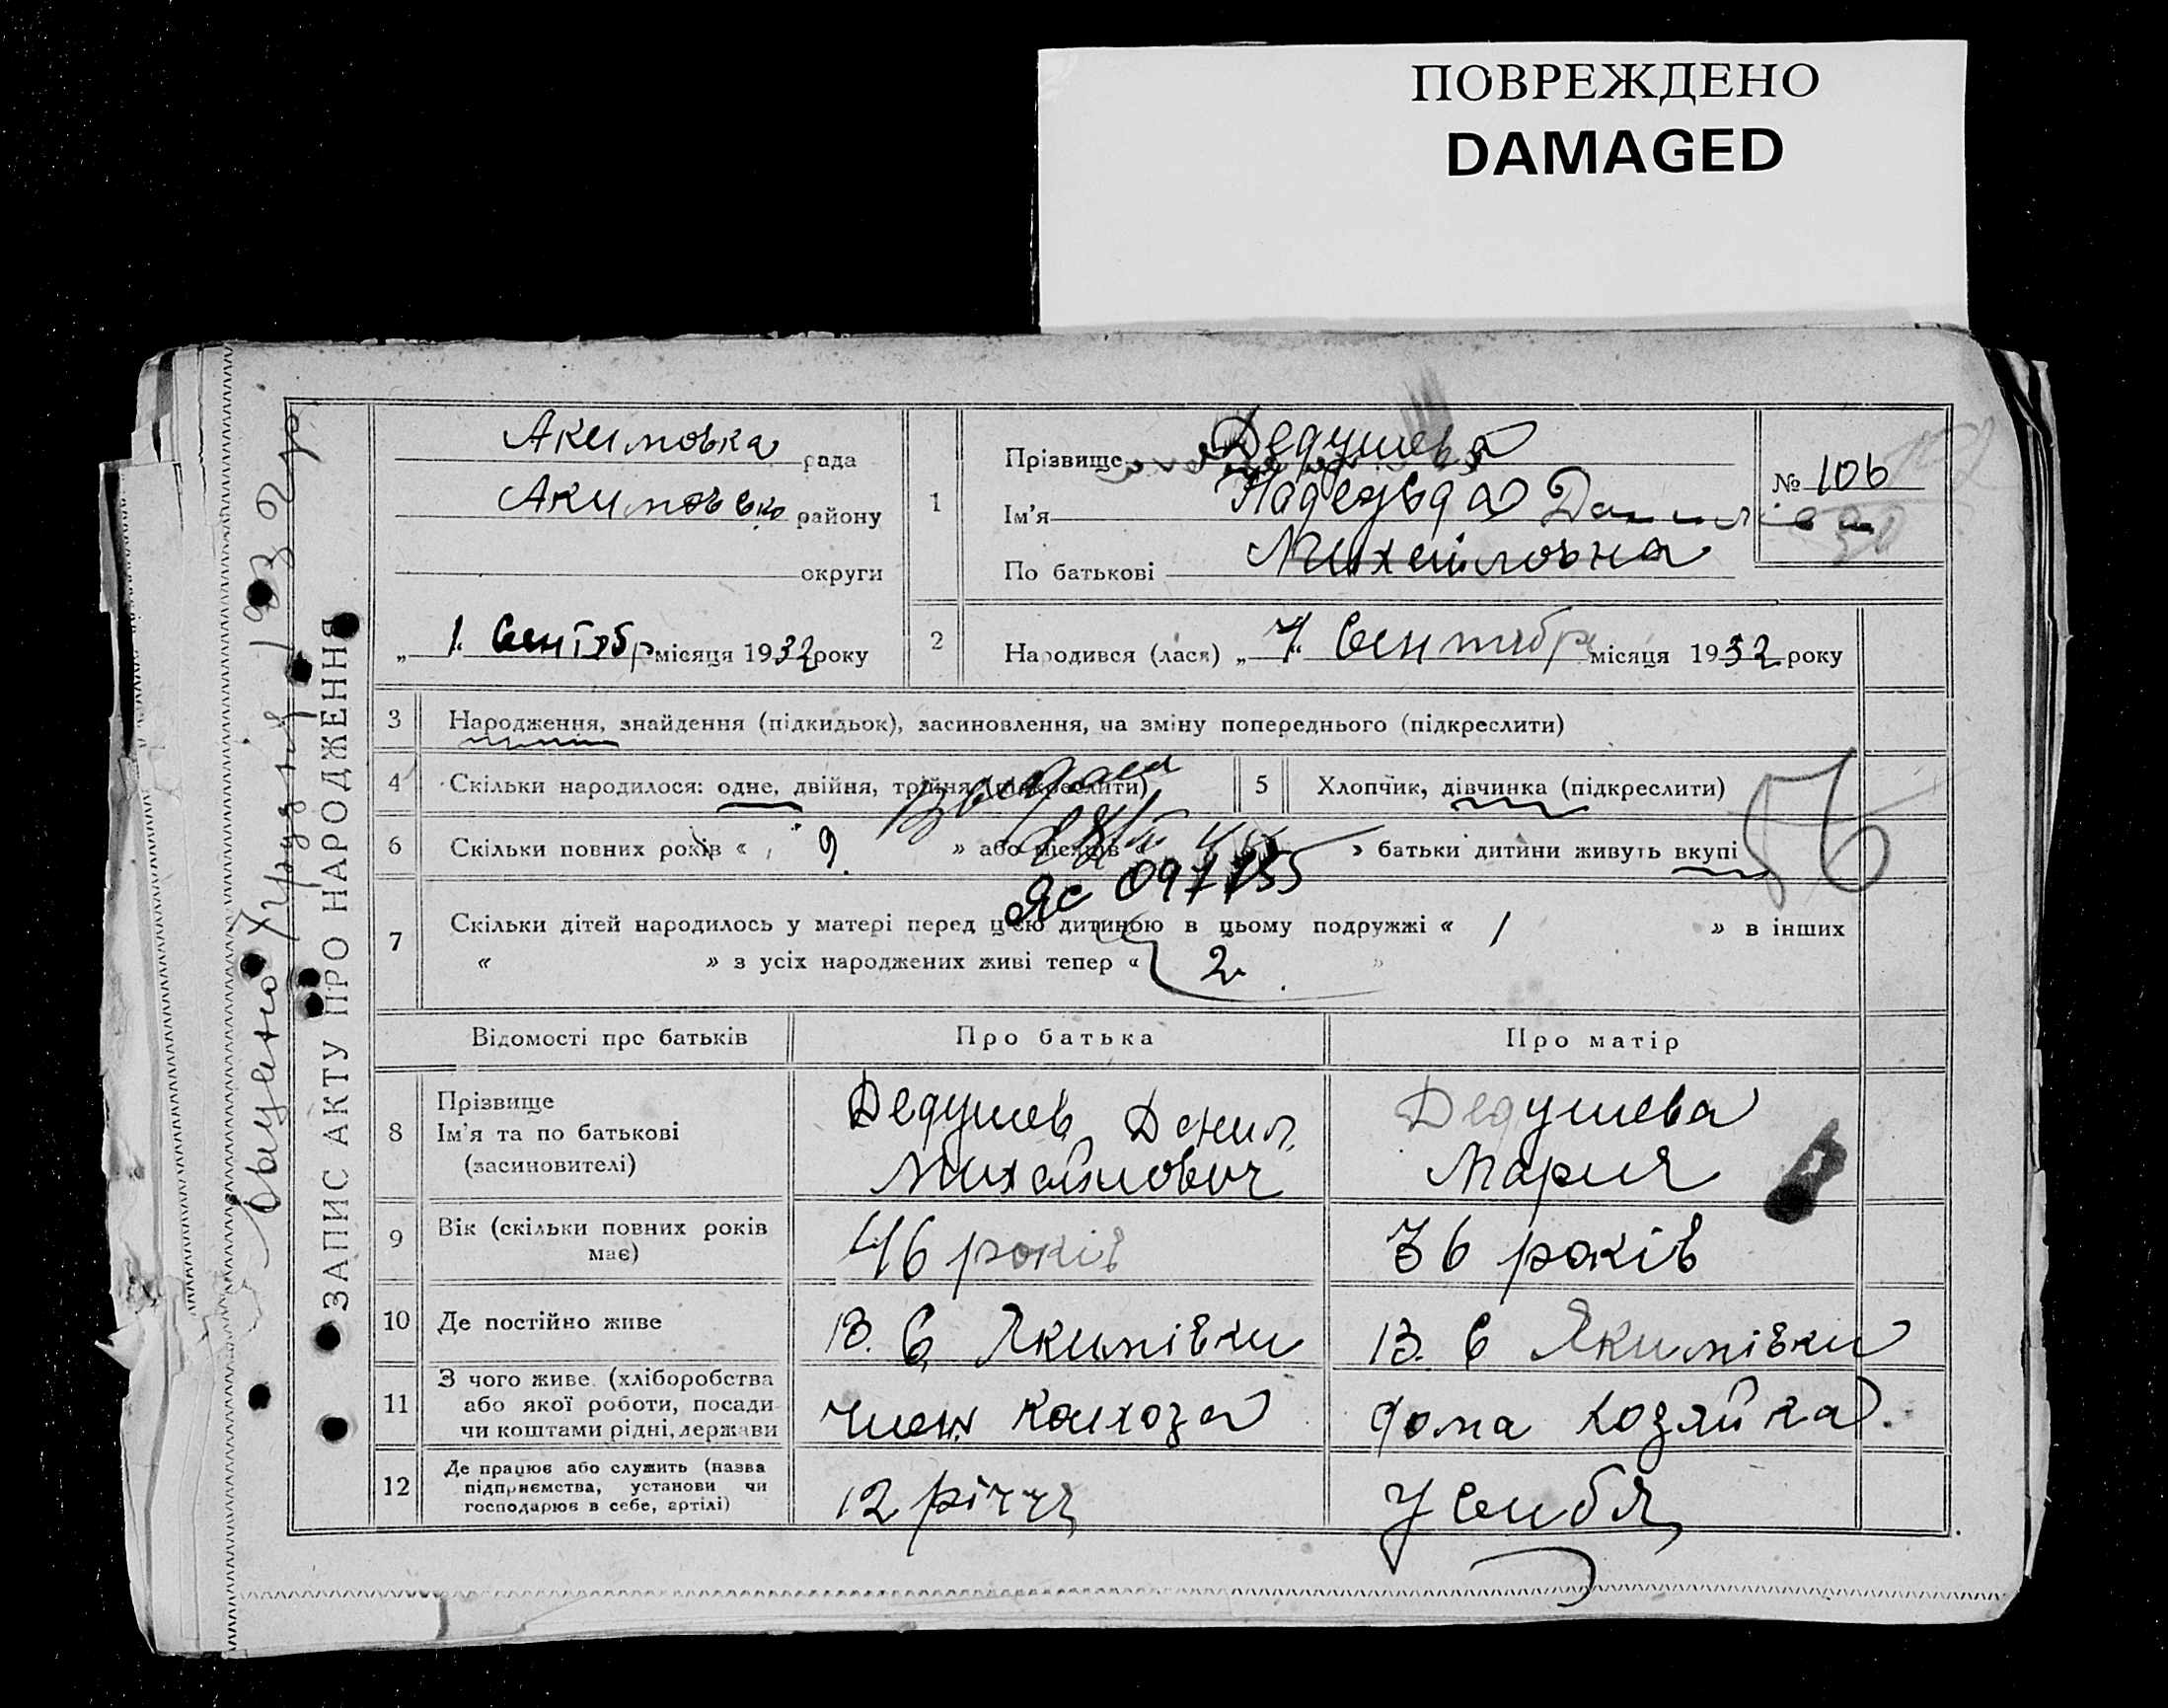 ПОВРЕЖДЕНО
DAMAGED
ЗАПИС АКТУ ПРО НАРОДЖЕННЯ
Акимовка рада
Акимовско району
округи
„ 1. Сентябр місяця 1932 року
1
Прізвище Дедушева
Ім'я Надежда Данилівна
По батькові Михайловна
№ 106
2
Народився (лася) „ 7. Сентябр місяця 1932 року
3 Народження, знайдення (підкидьок), засиновлення, на зміну попереднього (підкреслити)
4 Скільки народилося: одне, двійня, трійня (підкреслити)
5 Хлопчик, дівчинка (підкреслити)
6 Скільки повних років « 9. » або місяців « » батьки дитини живуть вкупі
56
ЯС 097755
7 Скільки дітей народилось у матері перед цією дитиною в цьому подружжі « 1 » в інших
« » з усіх народжених живі тепер « 2 »
Відомості про батьків Про батька Про матір
8 Прізвище
Ім'я та по батькові
(засиновителі)
Дедушев Данил
Михайлович
Дедушева
Мария
9 Вік (скільки повних років
має)
46 років
36 років
10 Де постійно живе
В. с Якимівки
В. с Якимівки
11 З чого живе (хліборобства
або якої роботи, посади
чи коштами рідні, держави
член колхоза
дома хозяйка.
12 Де працює або служить (назва
підприємства, установи чи
господарює в себе, артілі)
12 річчя
У себя